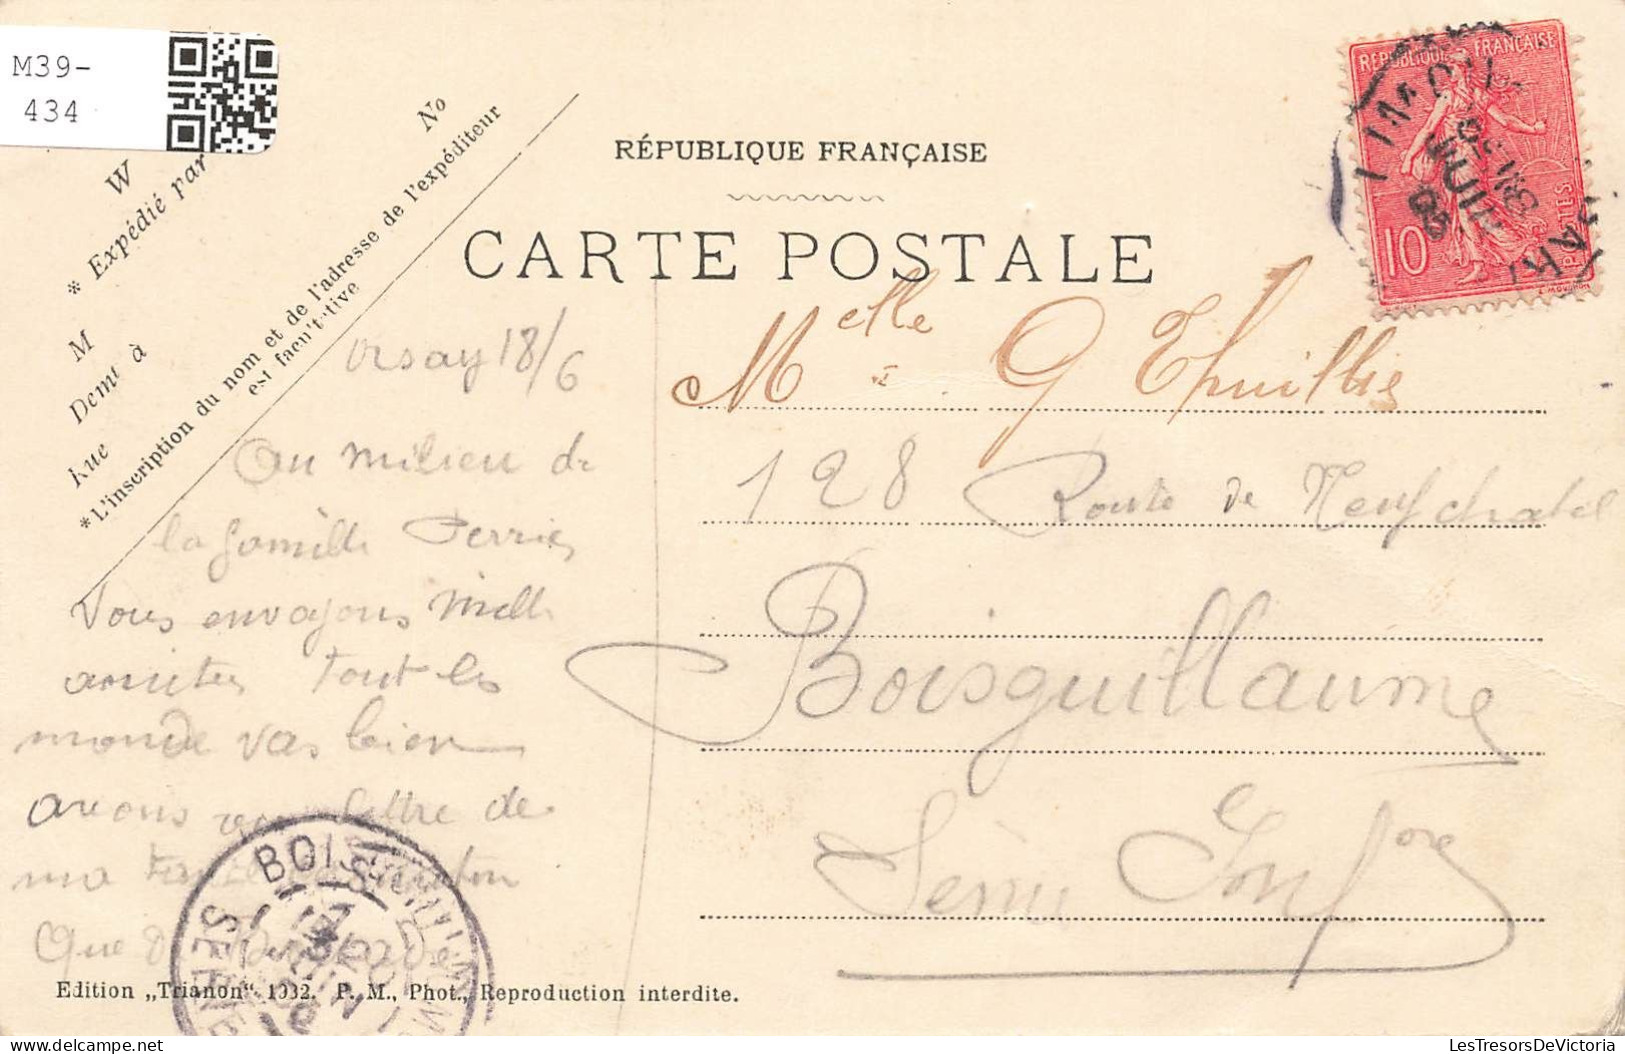 M39-
434
No
W
* Expédié par
M
Demt à
Rue
*L'inscription du nom et de l'adresse de l'expéditeur
est facultative
RÉPUBLIQUE FRANÇAISE
CARTE POSTALE
REPUBLIQUE FRANÇAISE
POSTES
10
E. MOUCHON
Orsay 18/6
Au milieu de
la famille Perrier
Vous envoyons mille
amities tout le
monde vas bien
avons reçu lettre de
ma tante
Que de
Melle G Thuillier
128 Route de Neufchatel
Boisguillaume
Seine Infore
BOISGUILLAUME
SEINE
Edition „Trianon“ 1032. P. M., Phot., Reproduction interdite.
LesTresorsDeVictoria.com